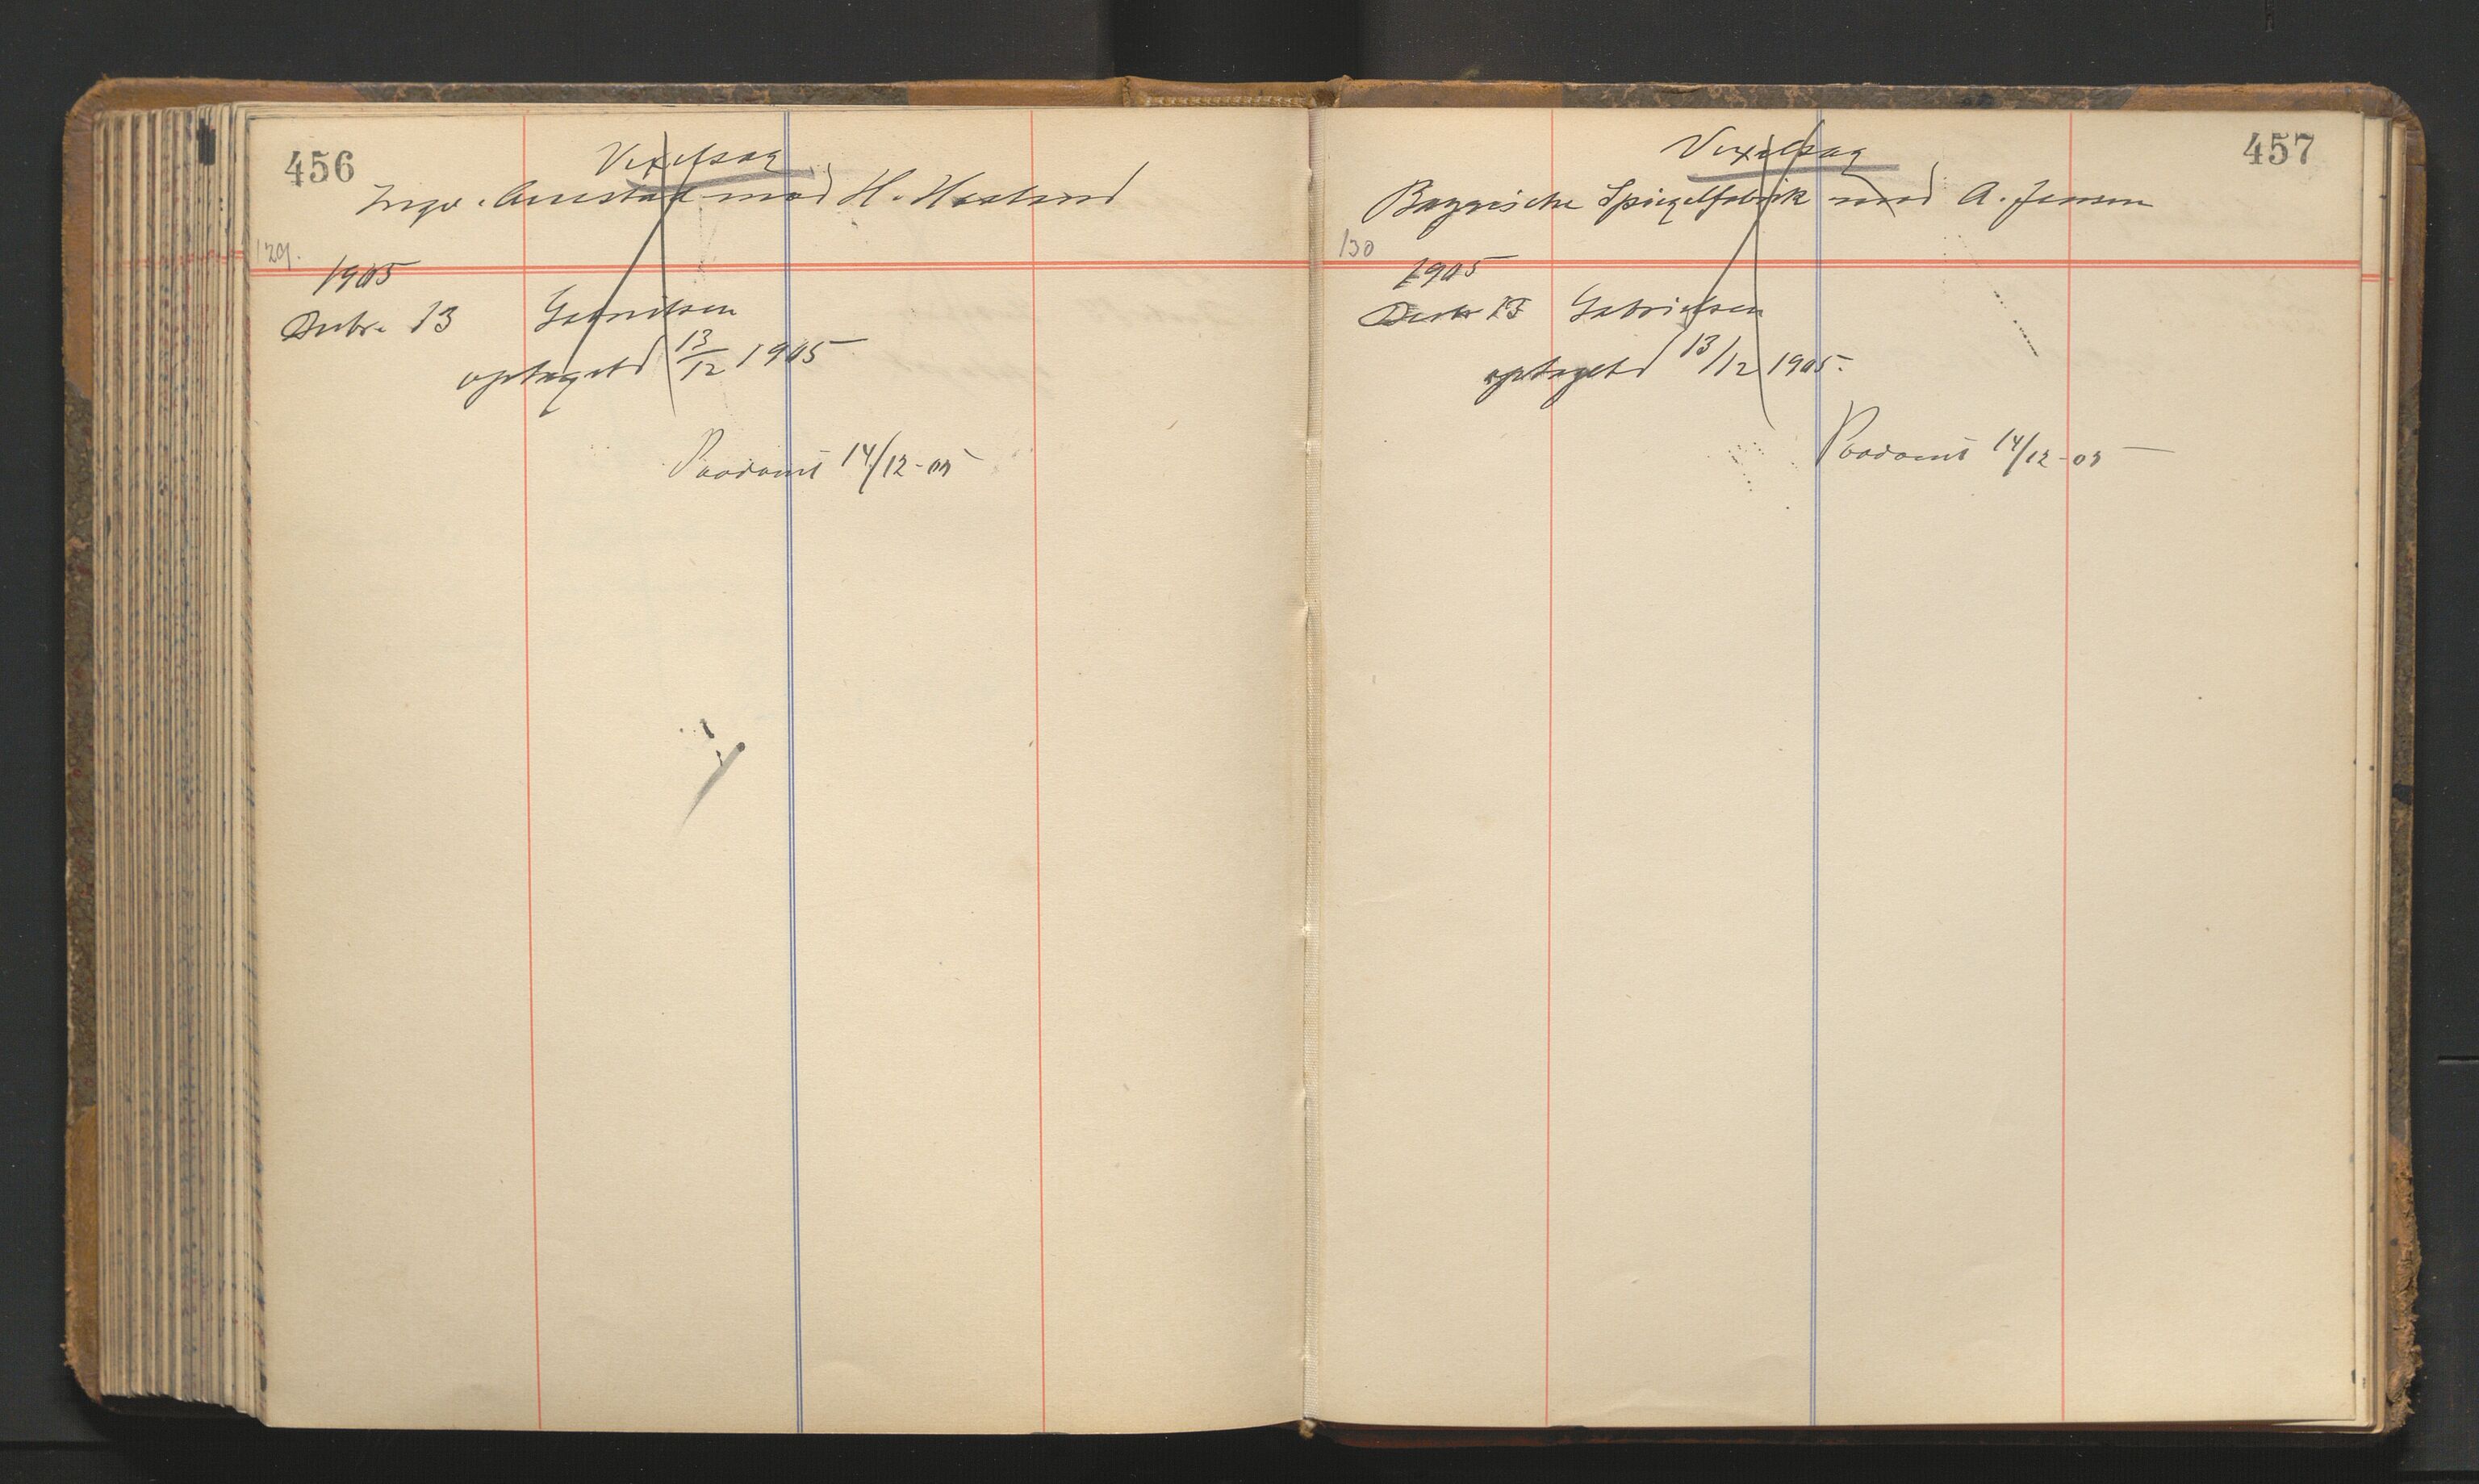 456
Vexelsag
Ingv. Aarestad mod H. Haaland
129.
1905
Decbr. 13 Gabrielsen
optaget d 13/12 1905
Paadømt 14/12-05
457
Vexelsag
Bayrische Spiegelfabrik mod A. Jensen
130
1905
Decbr 13 Gabrielsen
optaget d 13/12 1905.
Paadømt 14/12-05